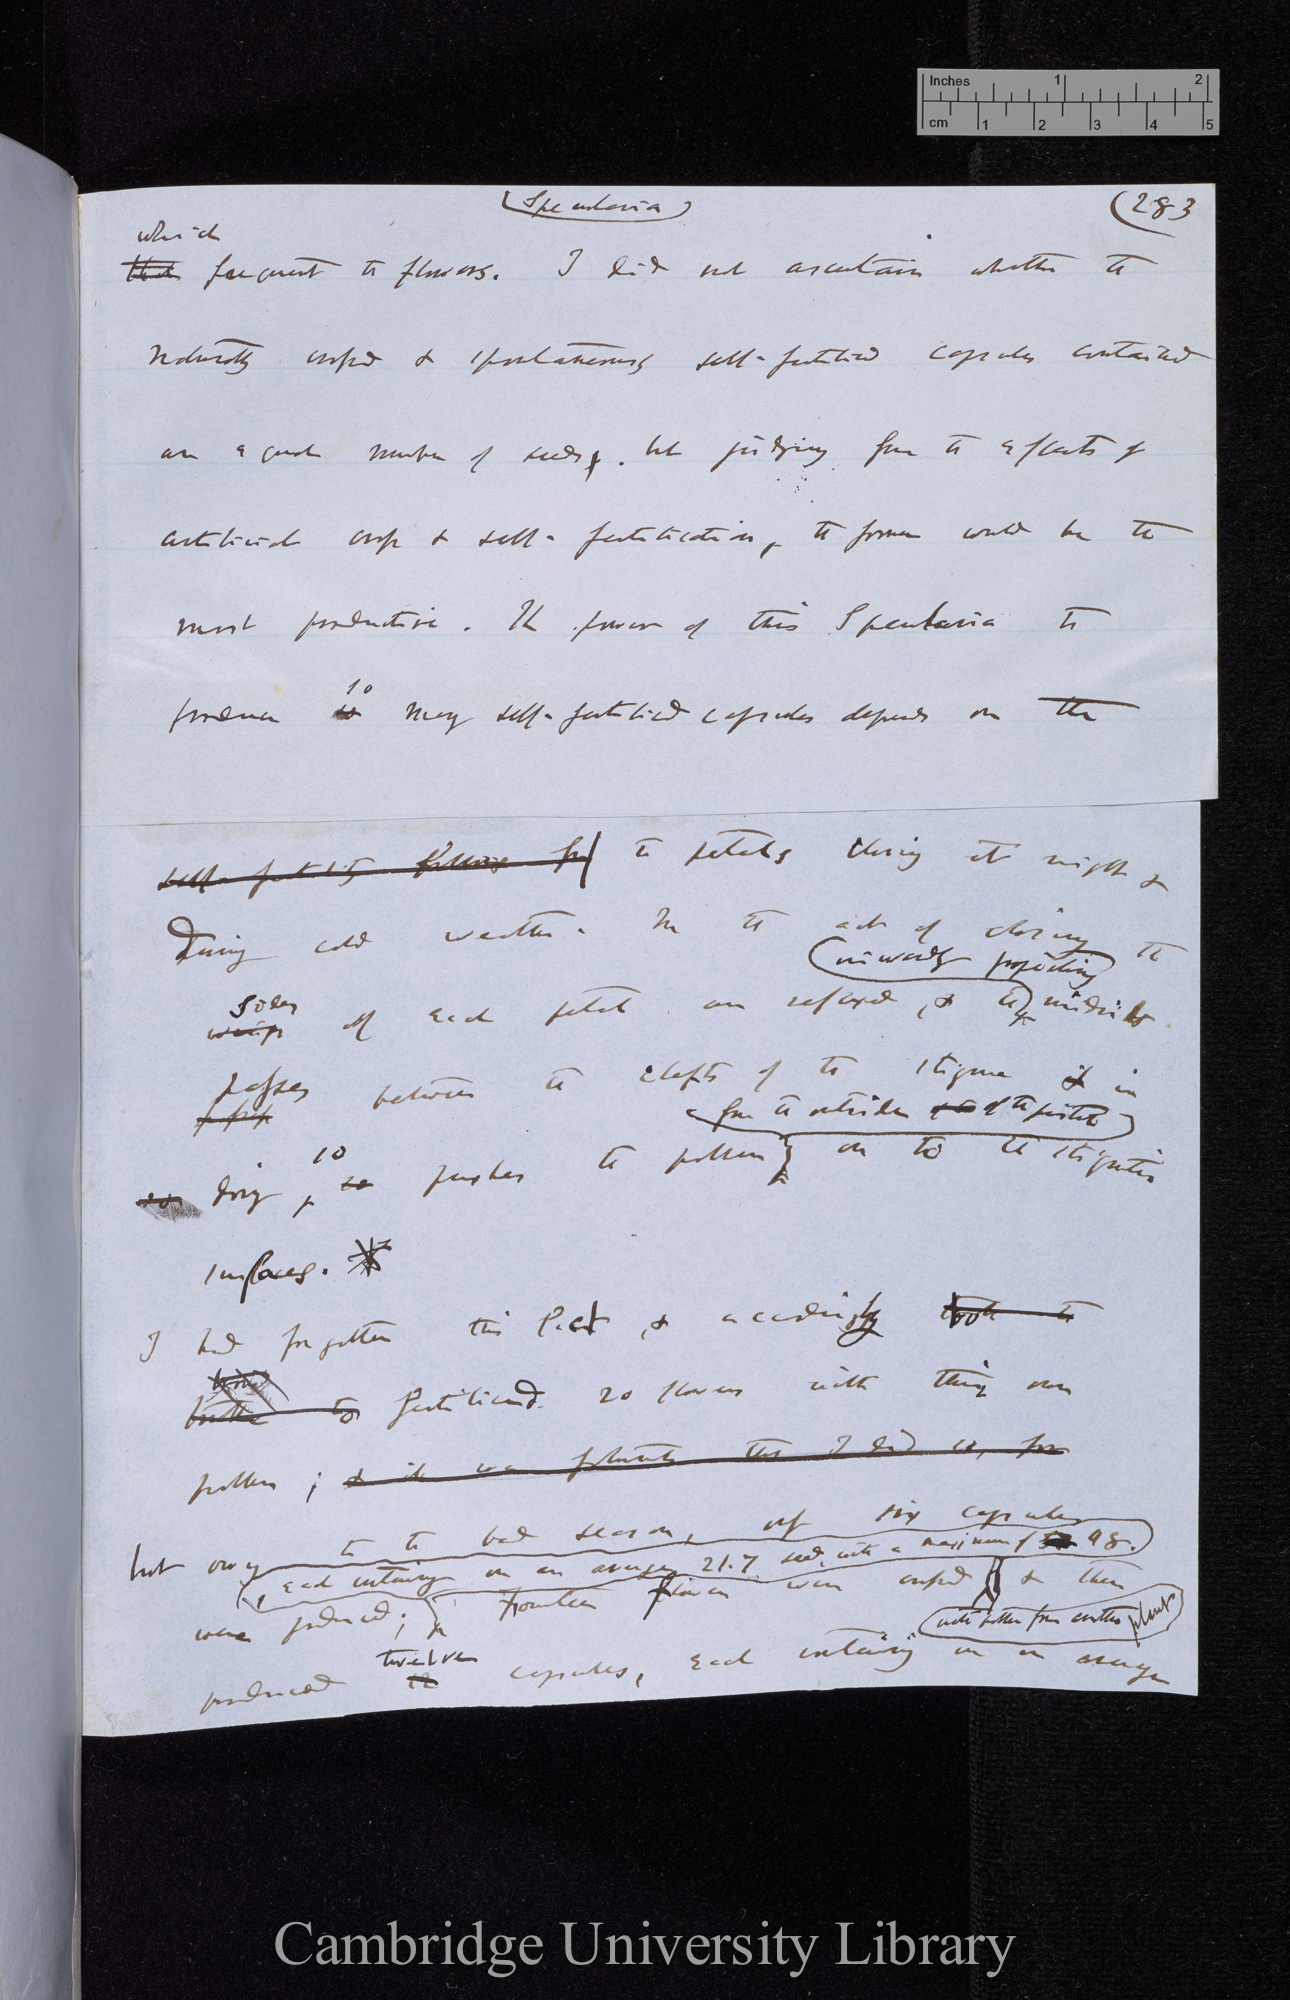 Inches 1 2
cm 1 2 3 4 5
Specularia
(283
which
frequent the flowers. I did not ascertain whether the
naturally crossed & spontaneously self-fertilised capsules contained
an equal number of seeds, but judging from the effects of
artificial cross & self-fertilisation, the former would be the
most productive. The power of this Specularia to
produce so many self-fertilised capsules depends on the
self-fertility follows from the petals closing at night &
During cold weather. In the act of closing the
inwardly projecting
sides
of each petal are reflexed, & the midribs
passes between the clefts of the stigma & in
from the outside of the pistil
doing, so pushes the pollen on to the stigmatic
surfaces.
I had forgotten this fact, & accordingly took the
fertilised 20 flowers with their own
pollen; & it was fortunate that I did so, for
but owing to the bad season, only six capsules
each containing on an average 21.7 seed, with a maximum of 48.
were produced; Fourteen flowers were crossed & these
with pollen from another plant
twelve
produced 12 capsules, each containing on an average
Cambridge University Library